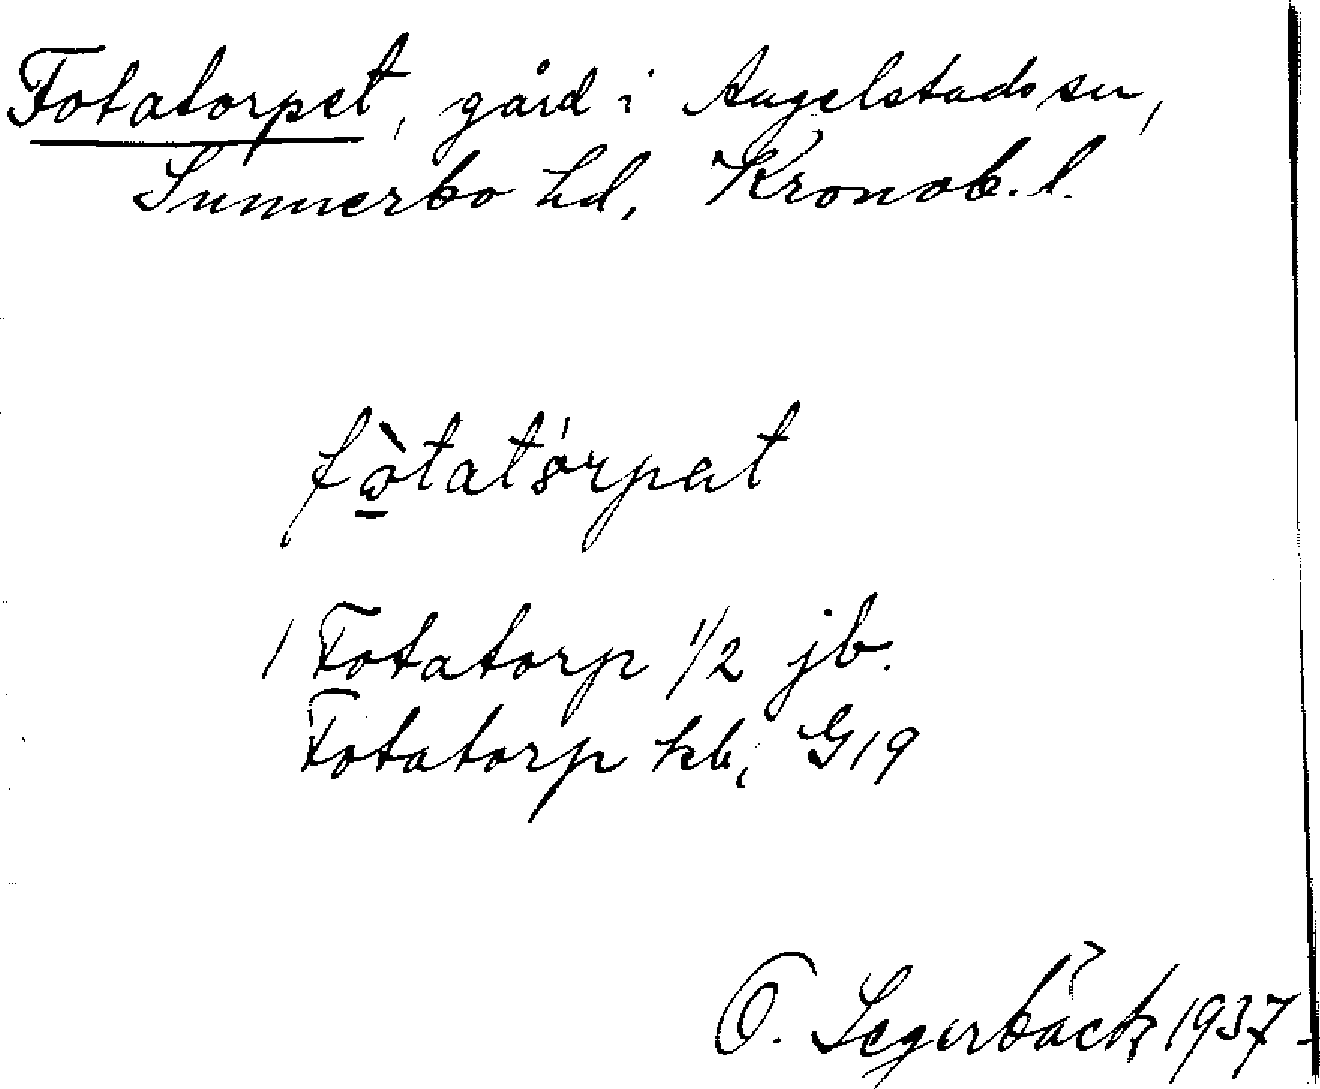 Fotatorpet, gård i Angelstads sn,
Sunnerbo hd, Kronob. l.
fòtatórpat
1 Fotatorp 1/2 jb.
Fotatorp kb, G19
O. Segerbäck 1937.